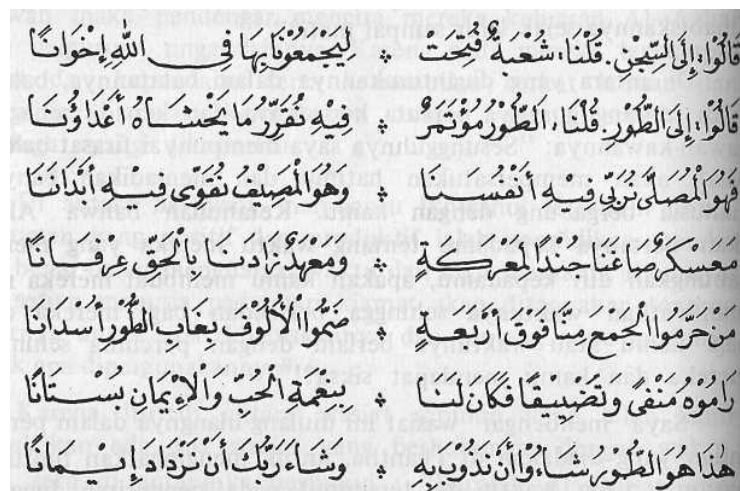 قَالُوْا: إِلَى السِّجْنِ. قُلْنَا: شُعْبَةٌ فُتِحَتْ ۞ لِيَجْمَعُوْنَا بِهَا فِي اللهِ إِخْوَانًا
قَالُوْا: إِلَى الطُّوْرِ. قُلْنَا: الطُّوْرُ مُؤْتَمَرٌ ۞ فِيْهِ نُقَرِّرُ مَا يَخْشَاهُ أَعْدَاؤُنَا
فَهُوَ الْمُصَلَّى نُرَبِّي فِيْهِ أَنْفُسَنَا ۞ وَهُوَ الْمَصِيْفُ نُقَوِّى فِيْهِ أَبْدَانَنَا
مُعَسْكَرٌ صَاغَنَا جُنْدًا لِمَعْرَكَةٍ ۞ وَمَعْهَدٌ زَادَنَا بِالْحَقِّ عِرْفَانًا
مَنْ حَرَّمُوا الْجَمْعَ مِنَّا فَوْقَ أَرْبَعَةٍ ۞ ضَمُّوا الْأُلُوْفَ بِغَابِ الطُّوْرِ أُسْدَانَا
رَامُوْهُ مَنْفًى وَتَضْيِيْقًا فَكَانَ لَنَا ۞ بِنِعْمَةِ الْحُبِّ وَالْإِيْمَانِ بُسْتَانًا
هٰذَا هُوَ الطُّوْرُ شَاءُوْا أَنْ نَذُوْبَ بِهِ ۞ وَشَاءَ رَبُّكَ أَنْ نَزْدَادَ إِيْمَانًا